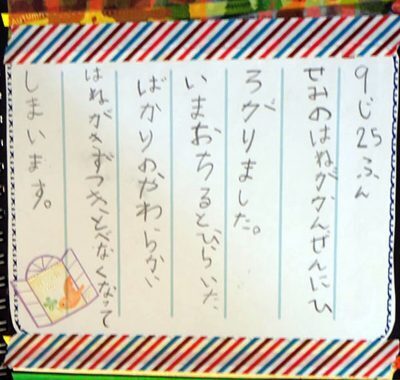 9じ25ふん
せみのはねがかんぜんにひ
ろがりました。
いまおちるとひらいた
ばかりのやわらかい
はねがきずつきとべなくなって
しまいます。